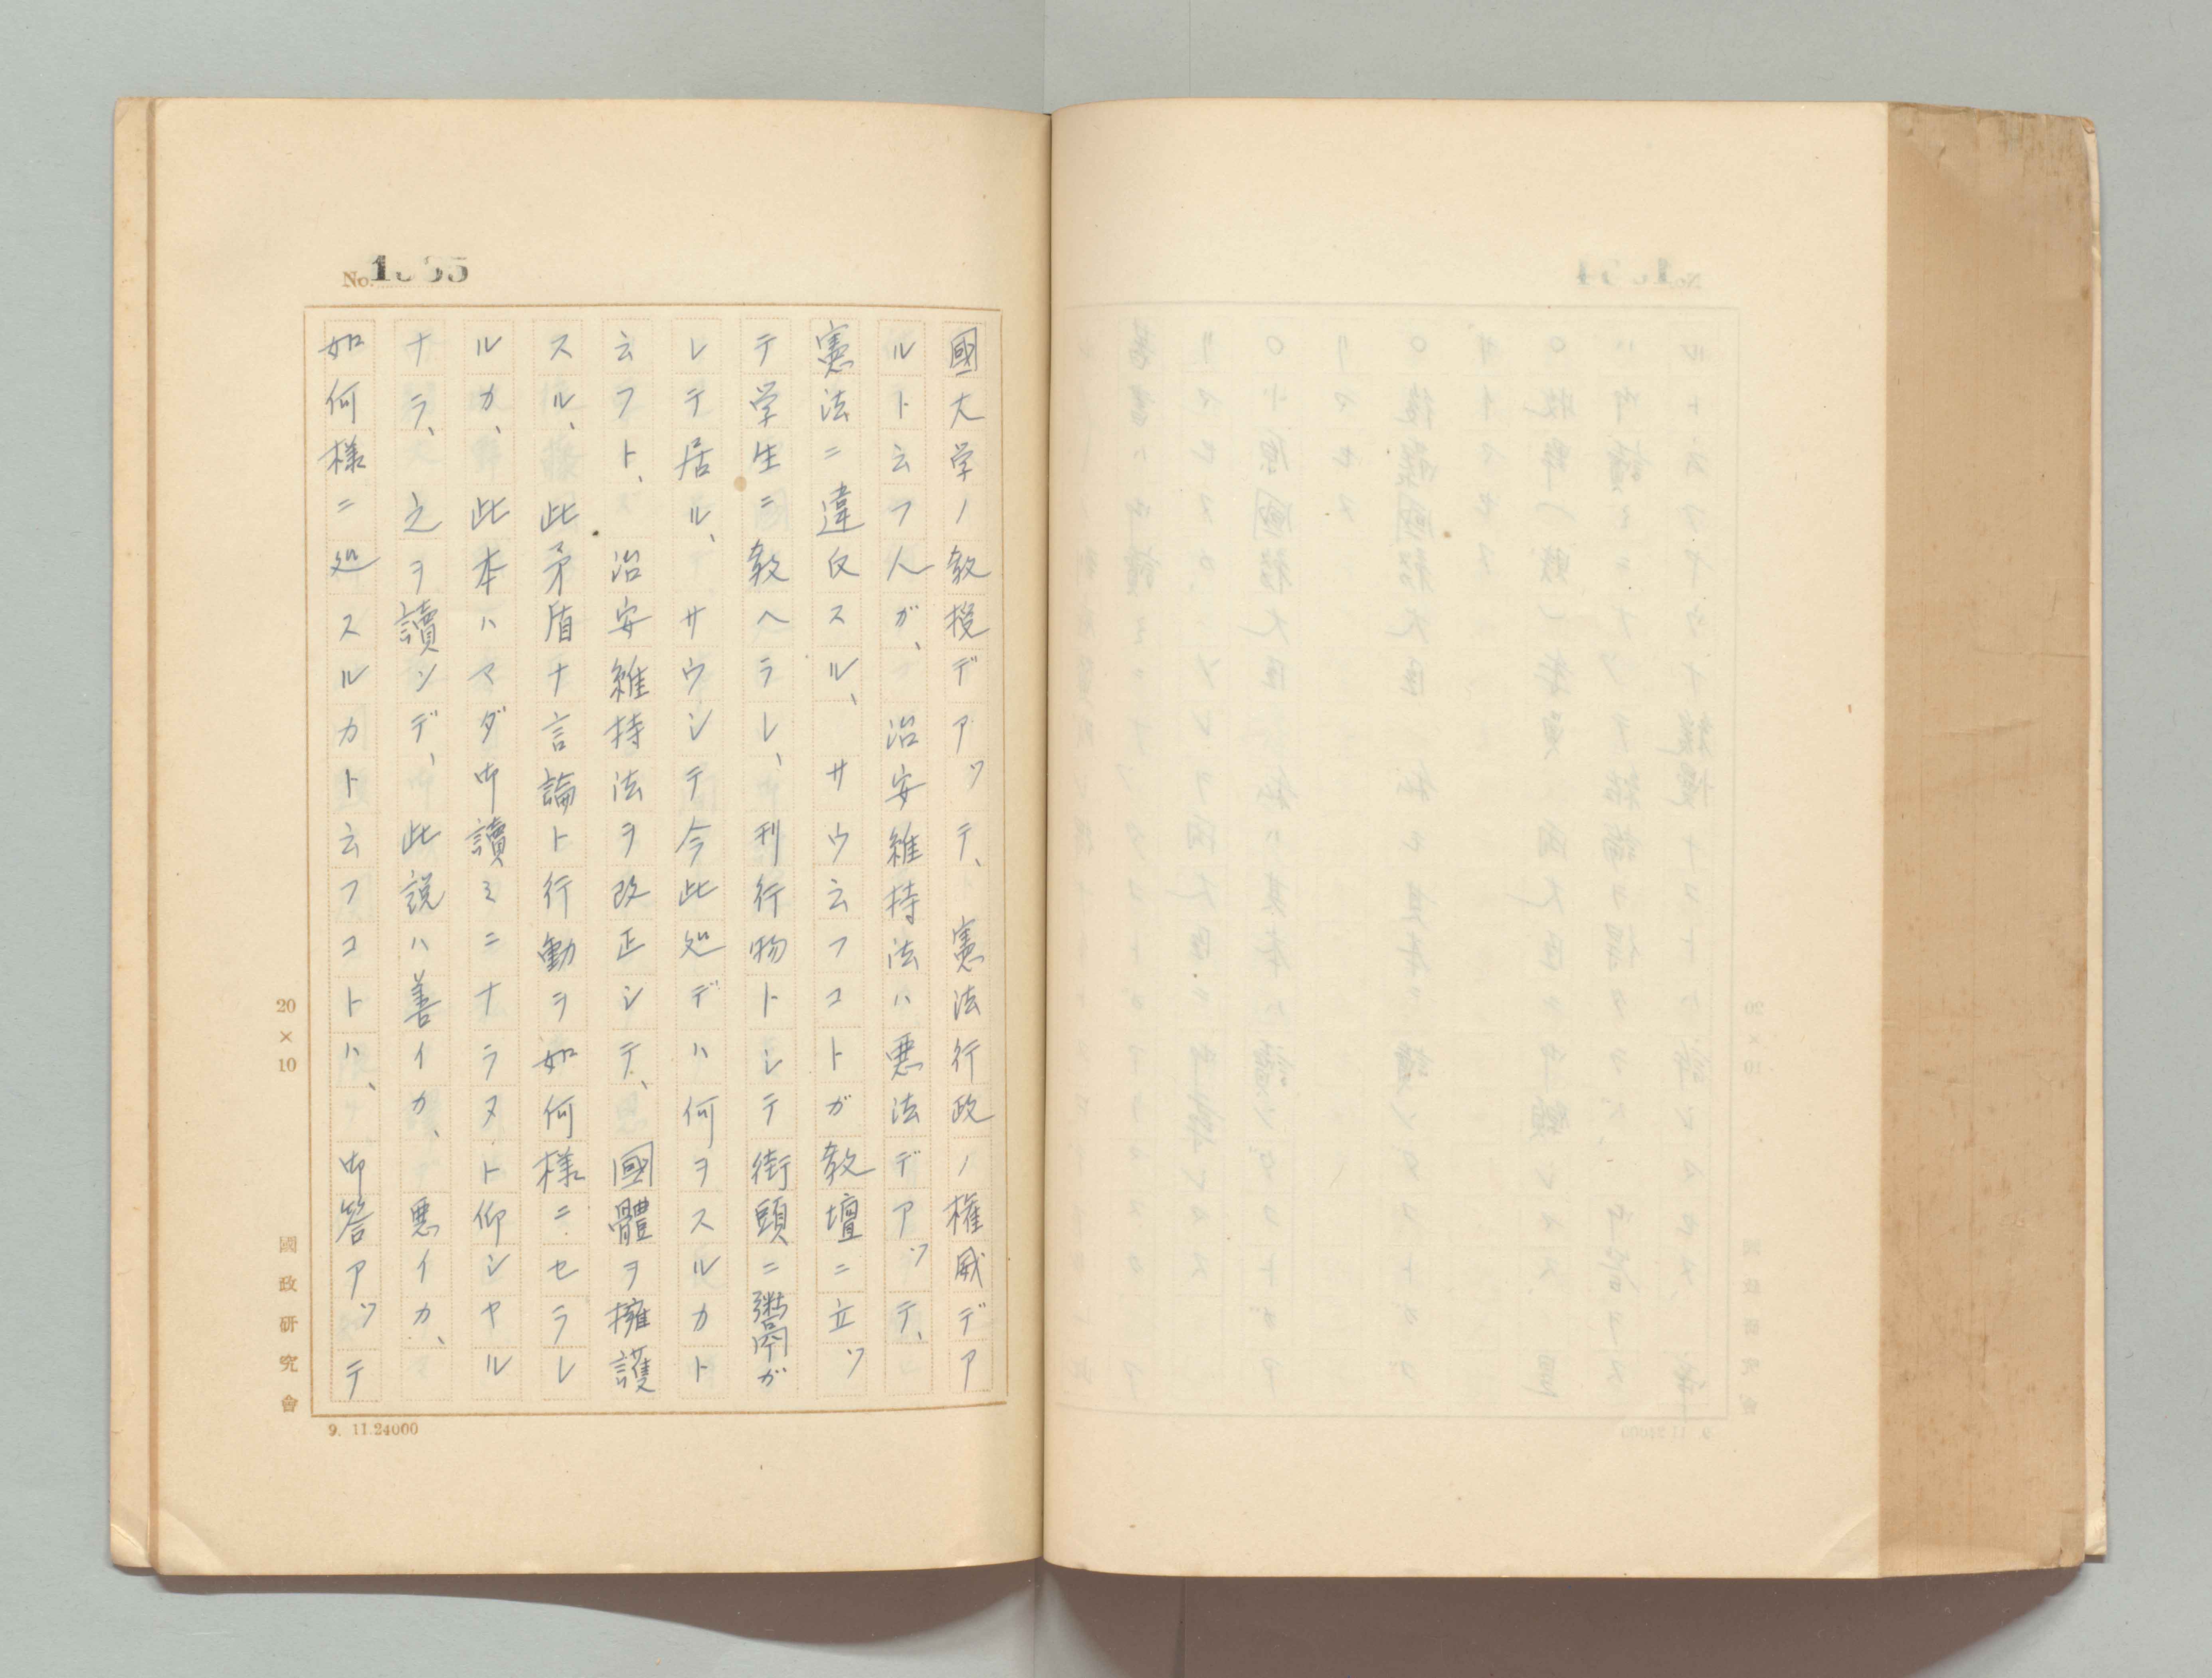 No.
國大学ノ教授デアッテ、憲法行政ノ権威デア
ルト云フ人ガ、治安維持法ハ悪法デアッテ、
憲法ニ違反スル、サウ云フコトガ教壇ニ立ツ
テ学生ニ教ヘラレ、刊行物トシテ街頭ニ鬻ガ
レテ居ル、サウシテ今此処デハ何ヲスルカト
云フト、治安維持法ヲ改正シテ、國體ヲ擁護
スル、此矛盾ナ言論ト行動ヲ如何様ニセラレ
ルカ、此本ハマダ御讀ミニナラヌト仰シヤル
ナラ、之ヲ讀ンデ、此説ハ善イカ、悪イカ、
如何様ニ処スルカト云フコトハ、御答アッテ
20×10
國政研究會
9. 11.24000